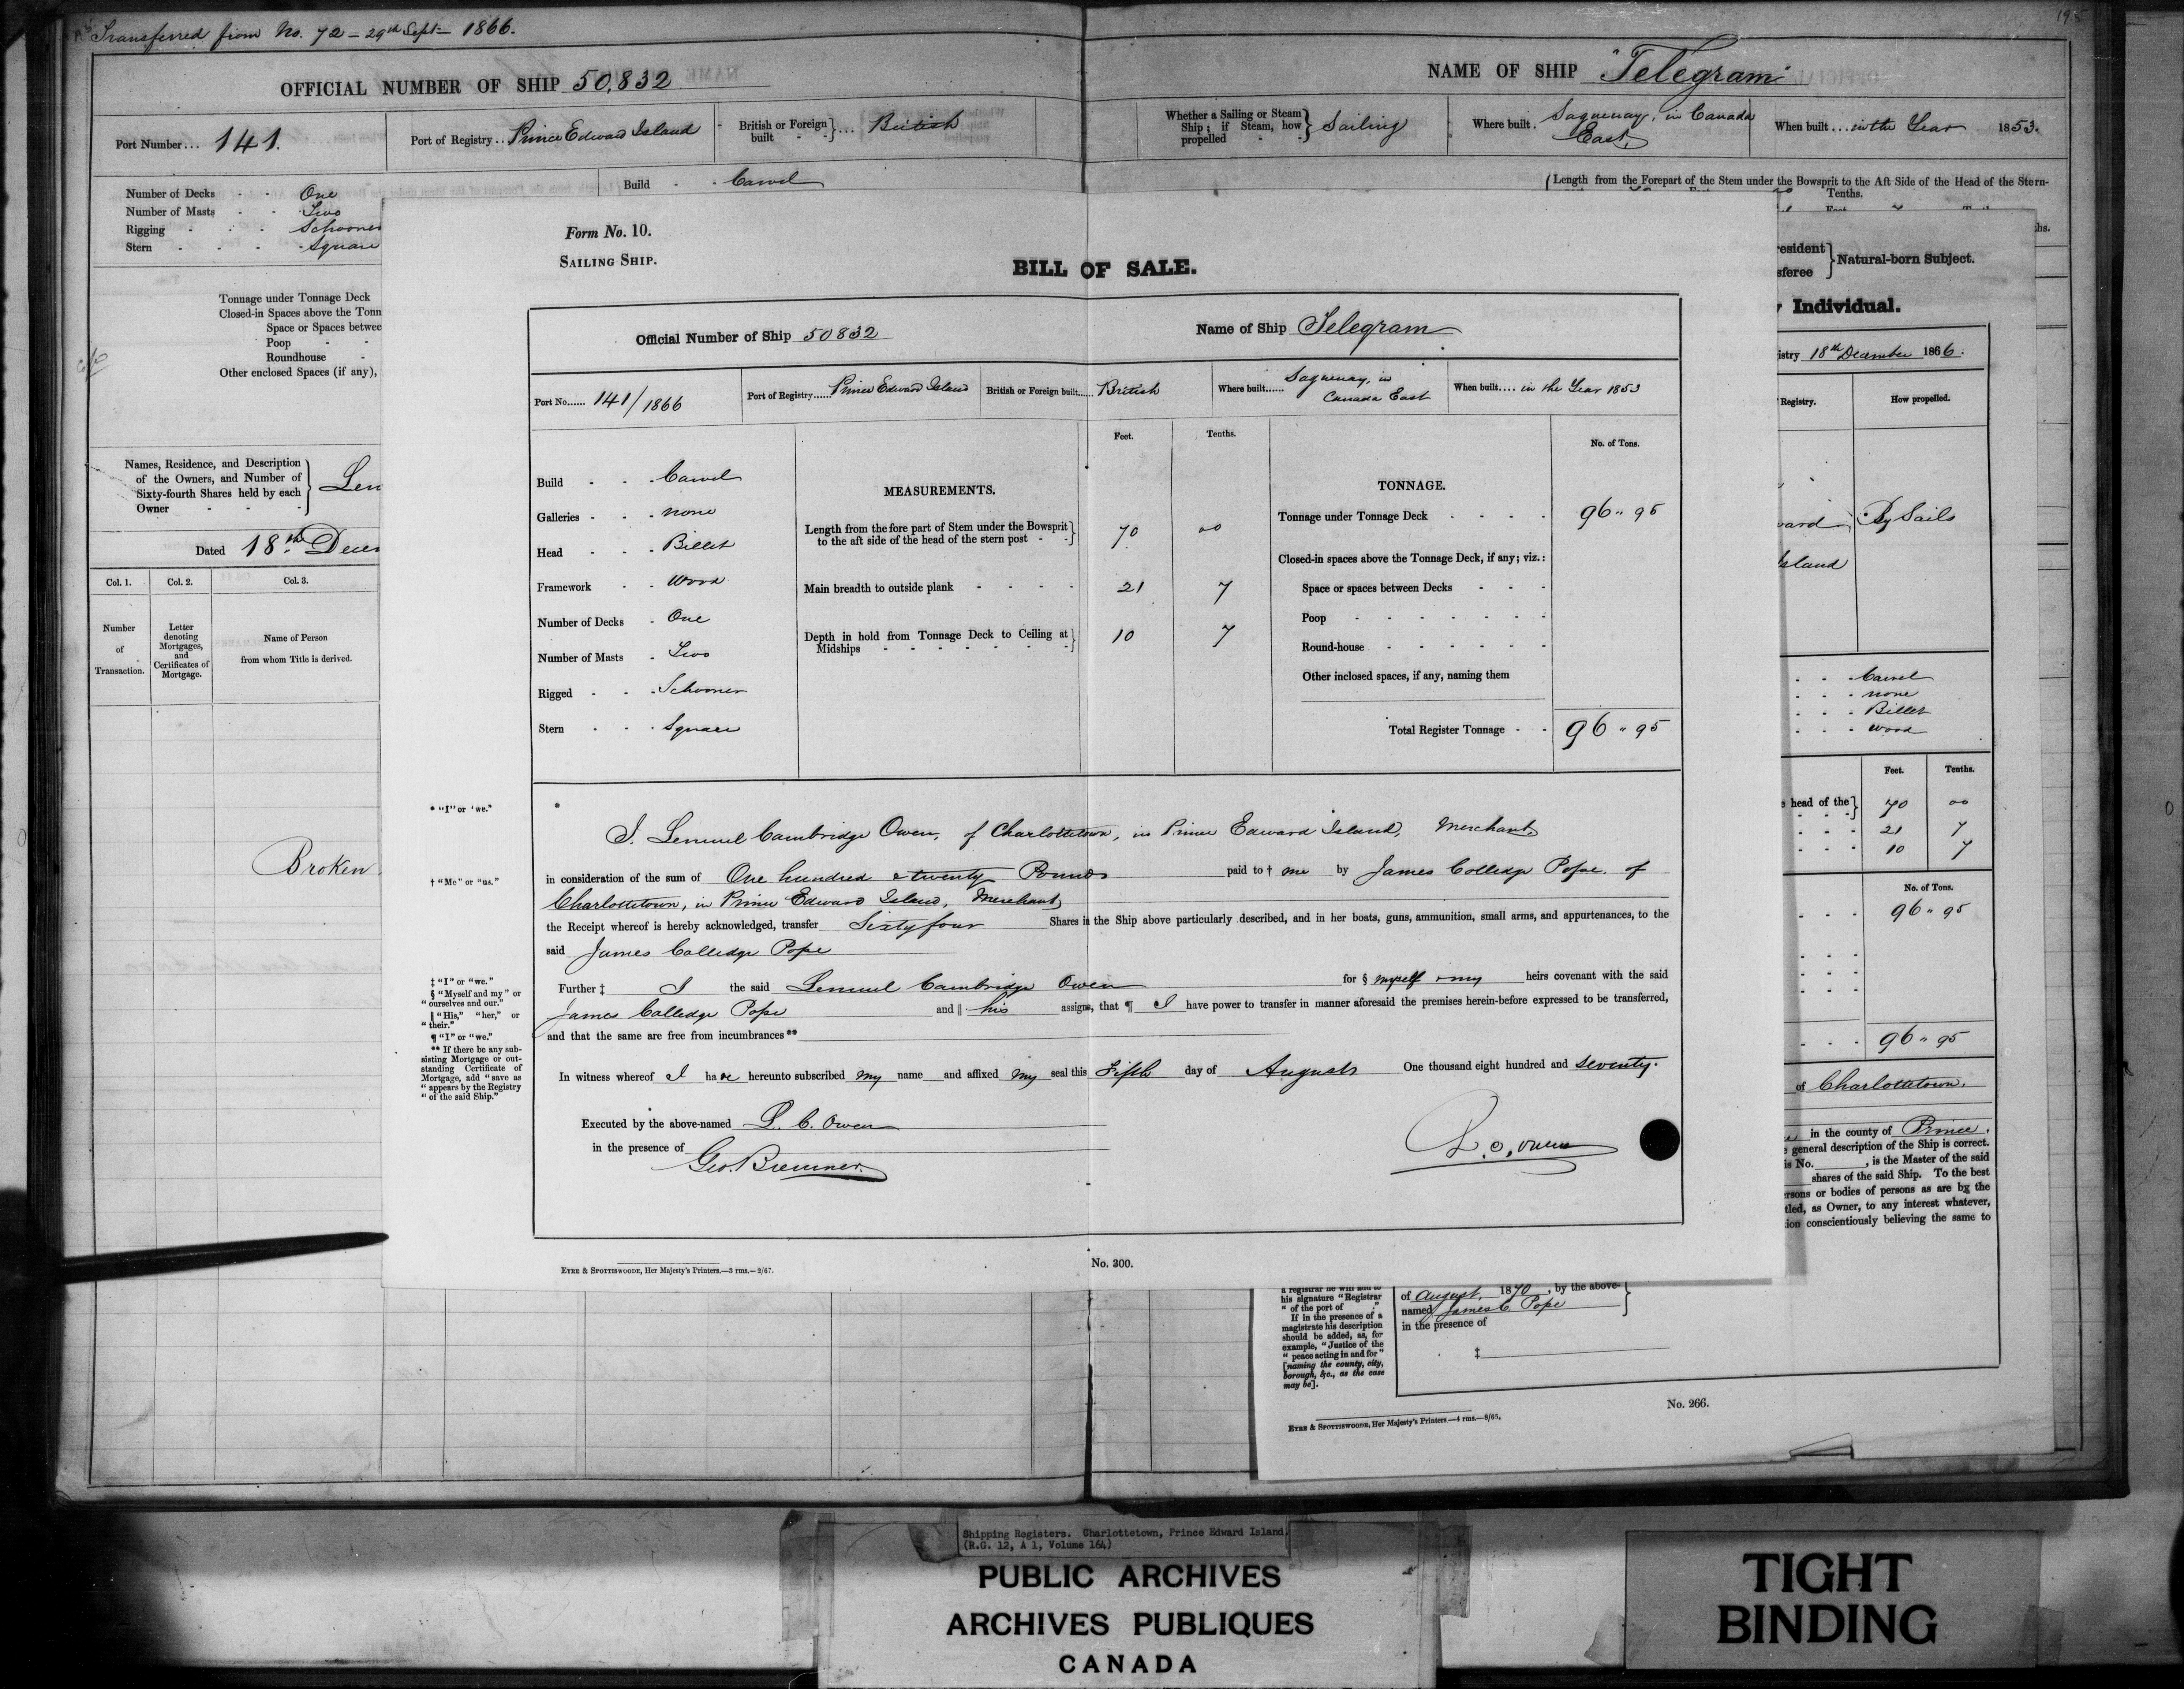 Transferred from No. 72 - 29th Sept- 1866.
195
OFFICIAL NUMBER OF SHIP 50,832
NAME OF SHIP "Telegram"
Port Number... 141.
Port of Registry.. Prince Edward Island
British or Foreign built } ... British
Whether a Sailing or Steam Ship; if Steam, how propelled } Sailing
Where built. Saguenay, in Canada East,
When built... in the Year 1853.
Number of Decks - - One
Number of Masts - - Two
Rigging - - - Schooner
Stern - - - Square
Build - - Carvel
Length from the Forepart of the Stem under the Bowsprit to the Aft Side of the Head of the Stern-
Tenths.
Tonnage under Tonnage Deck
Closed-in Spaces above the Tonn
Space or Spaces betwee
Poop - -
Roundhouse -
Other enclosed Spaces (if any),
Names, Residence, and Description
of the Owners, and Number of
Sixty-fourth Shares held by each
Owner - - -
} Lem
Dated 18th Decem
Col. 1. Col. 2. Col. 3.
Number of Transaction.
Letter denoting Mortgages, and Certificates of Mortgage.
Name of Person from whom Title is derived.
Broken
Form No. 10.
SAILING SHIP.
BILL OF SALE.
Official Number of Ship 50832
Name of Ship Telegram
Port No...... 141/1866
Port of Registry...... Prince Edward Island
British or Foreign built...... British
Where built...... Saguenay, in Canada East
When built.... in the Year 1853
Build - - - Carvel
Galleries - - - none
Head - - - Billet
Framework - - Wood
Number of Decks - One
Number of Masts - Two
Rigged - - - Schooner
Stern - - - Square
MEASUREMENTS.
Feet. Tenths.
Length from the fore part of Stem under the Bowsprit
to the aft side of the head of the stern post - - } 70 00
Main breadth to outside plank - - - - 21 7
Depth in hold from Tonnage Deck to Ceiling at
Midships - - - - - - - } 10 7
TONNAGE.
No. of Tons.
Tonnage under Tonnage Deck - - - - 96 " 95
Closed-in spaces above the Tonnage Deck, if any; viz.:
Space or spaces between Decks - - -
Poop - - - - - - -
Round-house - - - - - -
Other inclosed spaces, if any, naming them
Total Register Tonnage - - 96 " 95
* "I" or "we."
I, Lemuel Cambridge Owen, of Charlottetown, in Prince Edward Island, Merchant,
† "Me" or "us."
in consideration of the sum of One hundred & twenty Pounds paid to † me by James Colledge Pope, of
Charlottetown, in Prince Edward Island, Merchant,
the Receipt whereof is hereby acknowledged, transfer Sixty four Shares in the Ship above particularly described, and in her boats, guns, ammunition, small arms, and appurtenances, to the
said James Colledge Pope
Further ‡ I the said Lemuel Cambridge Owen for § myself & my heirs covenant with the said
James Colledge Pope and ‖ his assigns, that ¶ I have power to transfer in manner aforesaid the premises herein-before expressed to be transferred,
and that the same are free from incumbrances**
‡ "I" or "we."
§ "Myself and my" or
"ourselves and our."
‖ "His," "her," or
"their."
¶ "I" or "we."
** If there be any sub-
sisting Mortgage or out-
standing Certificate of
Mortgage, add "save as
"appears by the Registry
"of the said Ship."
In witness whereof I have hereunto subscribed my name and affixed my seal this Fifth day of August One thousand eight hundred and seventy.
Executed by the above-named L. C. Owen
in the presence of
Geo. Bremner.
L. C. Owen
EYRE & SPOTTISWOODE, Her Majesty's Printers.—3 rms.—2/67.
No. 300.
hs.
resident
sferee } Natural-born Subject.
Individual.
istry 18th December 1866.
Registry.
How propelled.
ward
Island
By Sails
- - - Carvel
- - - none
- - - Billet
- - - Wood
Feet. Tenths.
head of the } 70 00
- - - 21 7
- - - 10 7
No. of Tons.
96 " 95
96 " 95
of Charlottetown.
in the county of Prince.
general description of the Ship is correct.
is No. , is the Master of the said
shares of the said Ship. To the best
ersons or bodies of persons as are by the
tled, as Owner, to any interest whatever,
ion conscientiously believing the same to
his signature "Registrar
"of the port of ."
If in the presence of a
magistrate his description
should be added, as, for
example, "Justice of the
"peace acting in and for"
[naming the county, city,
borough, &c., as the case
may be].
of August, 1870, by the above-
named James C. Pope }
in the presence of
‡
EYRE & SPOTTISWOODE, Her Majesty's Printers.—4 rms.—8/65.
No. 266.
Shipping Registers. Charlottetown, Prince Edward Island.
(R.G. 12, A 1, Volume 164)
PUBLIC ARCHIVES
ARCHIVES PUBLIQUES
CANADA
TIGHT
BINDING